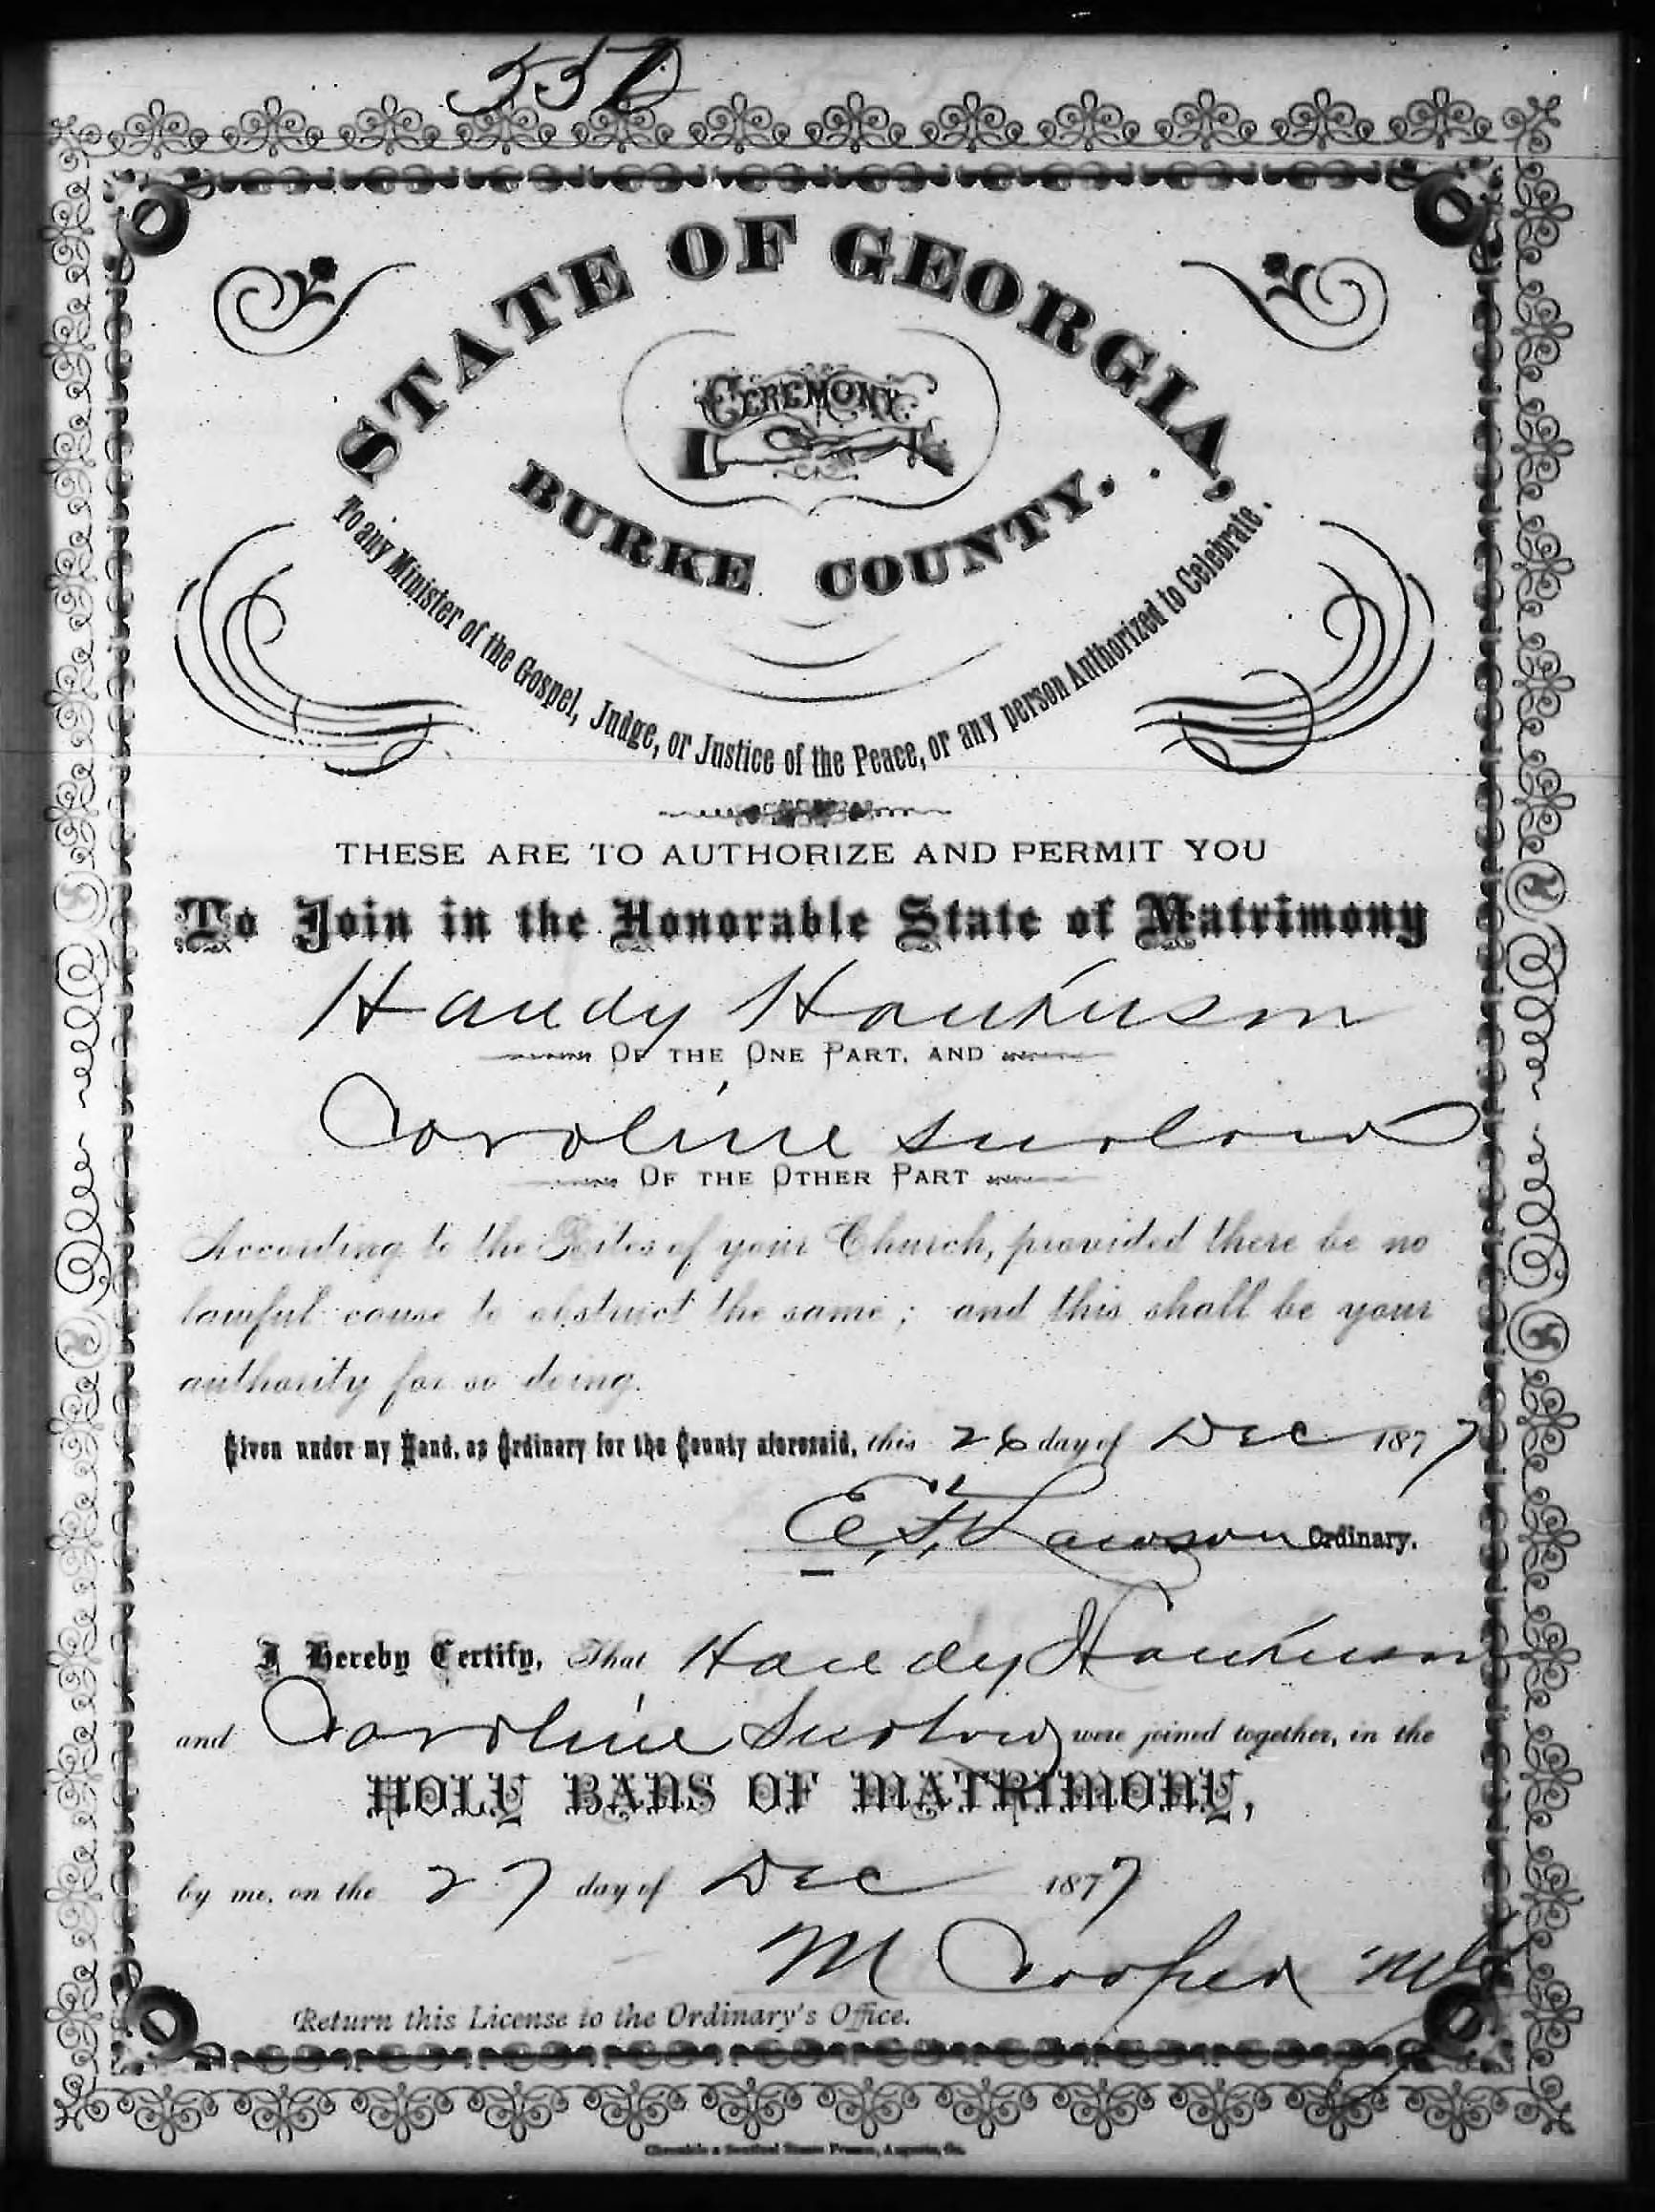 STATE OF GEORGIA,
CEREMONY
BURKE COUNTY.
To any Minister of the Gospel, Judge, or Justice of the Peace, or any person Authorized to Celebrate.
THESE ARE TO AUTHORIZE AND PERMIT YOU
To Join in the Honorable State of Matrimony
Handy Hankinson
OF THE ONE PART, AND
Caroline
OF THE OTHER PART
According to the Rites of your Church, provided there be no
lawful cause to obstruct the same; and this shall be your
authority for so doing.
Given under my Hand, as Ordinary for the County aforesaid, this 26 day of Dec 1877
E. F. Lawson Ordinary.
I Hereby Certify, That Handy Hankinson
and Caroline were joined together, in the
HOLY BANS OF MATRIMONY,
by me, on the 27 day of Dec 1877
M Cooper
Return this License to the Ordinary's Office.
Chronicle & Sentinel Steam Presses, Augusta, Ga.